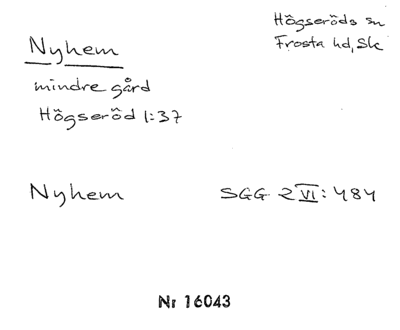 Högseröds sn
Frosta hd, Sk
Nyhem
mindre gård
Högseröd 1:37
Nyhem SGG 2 VI: 484
Nr 16043